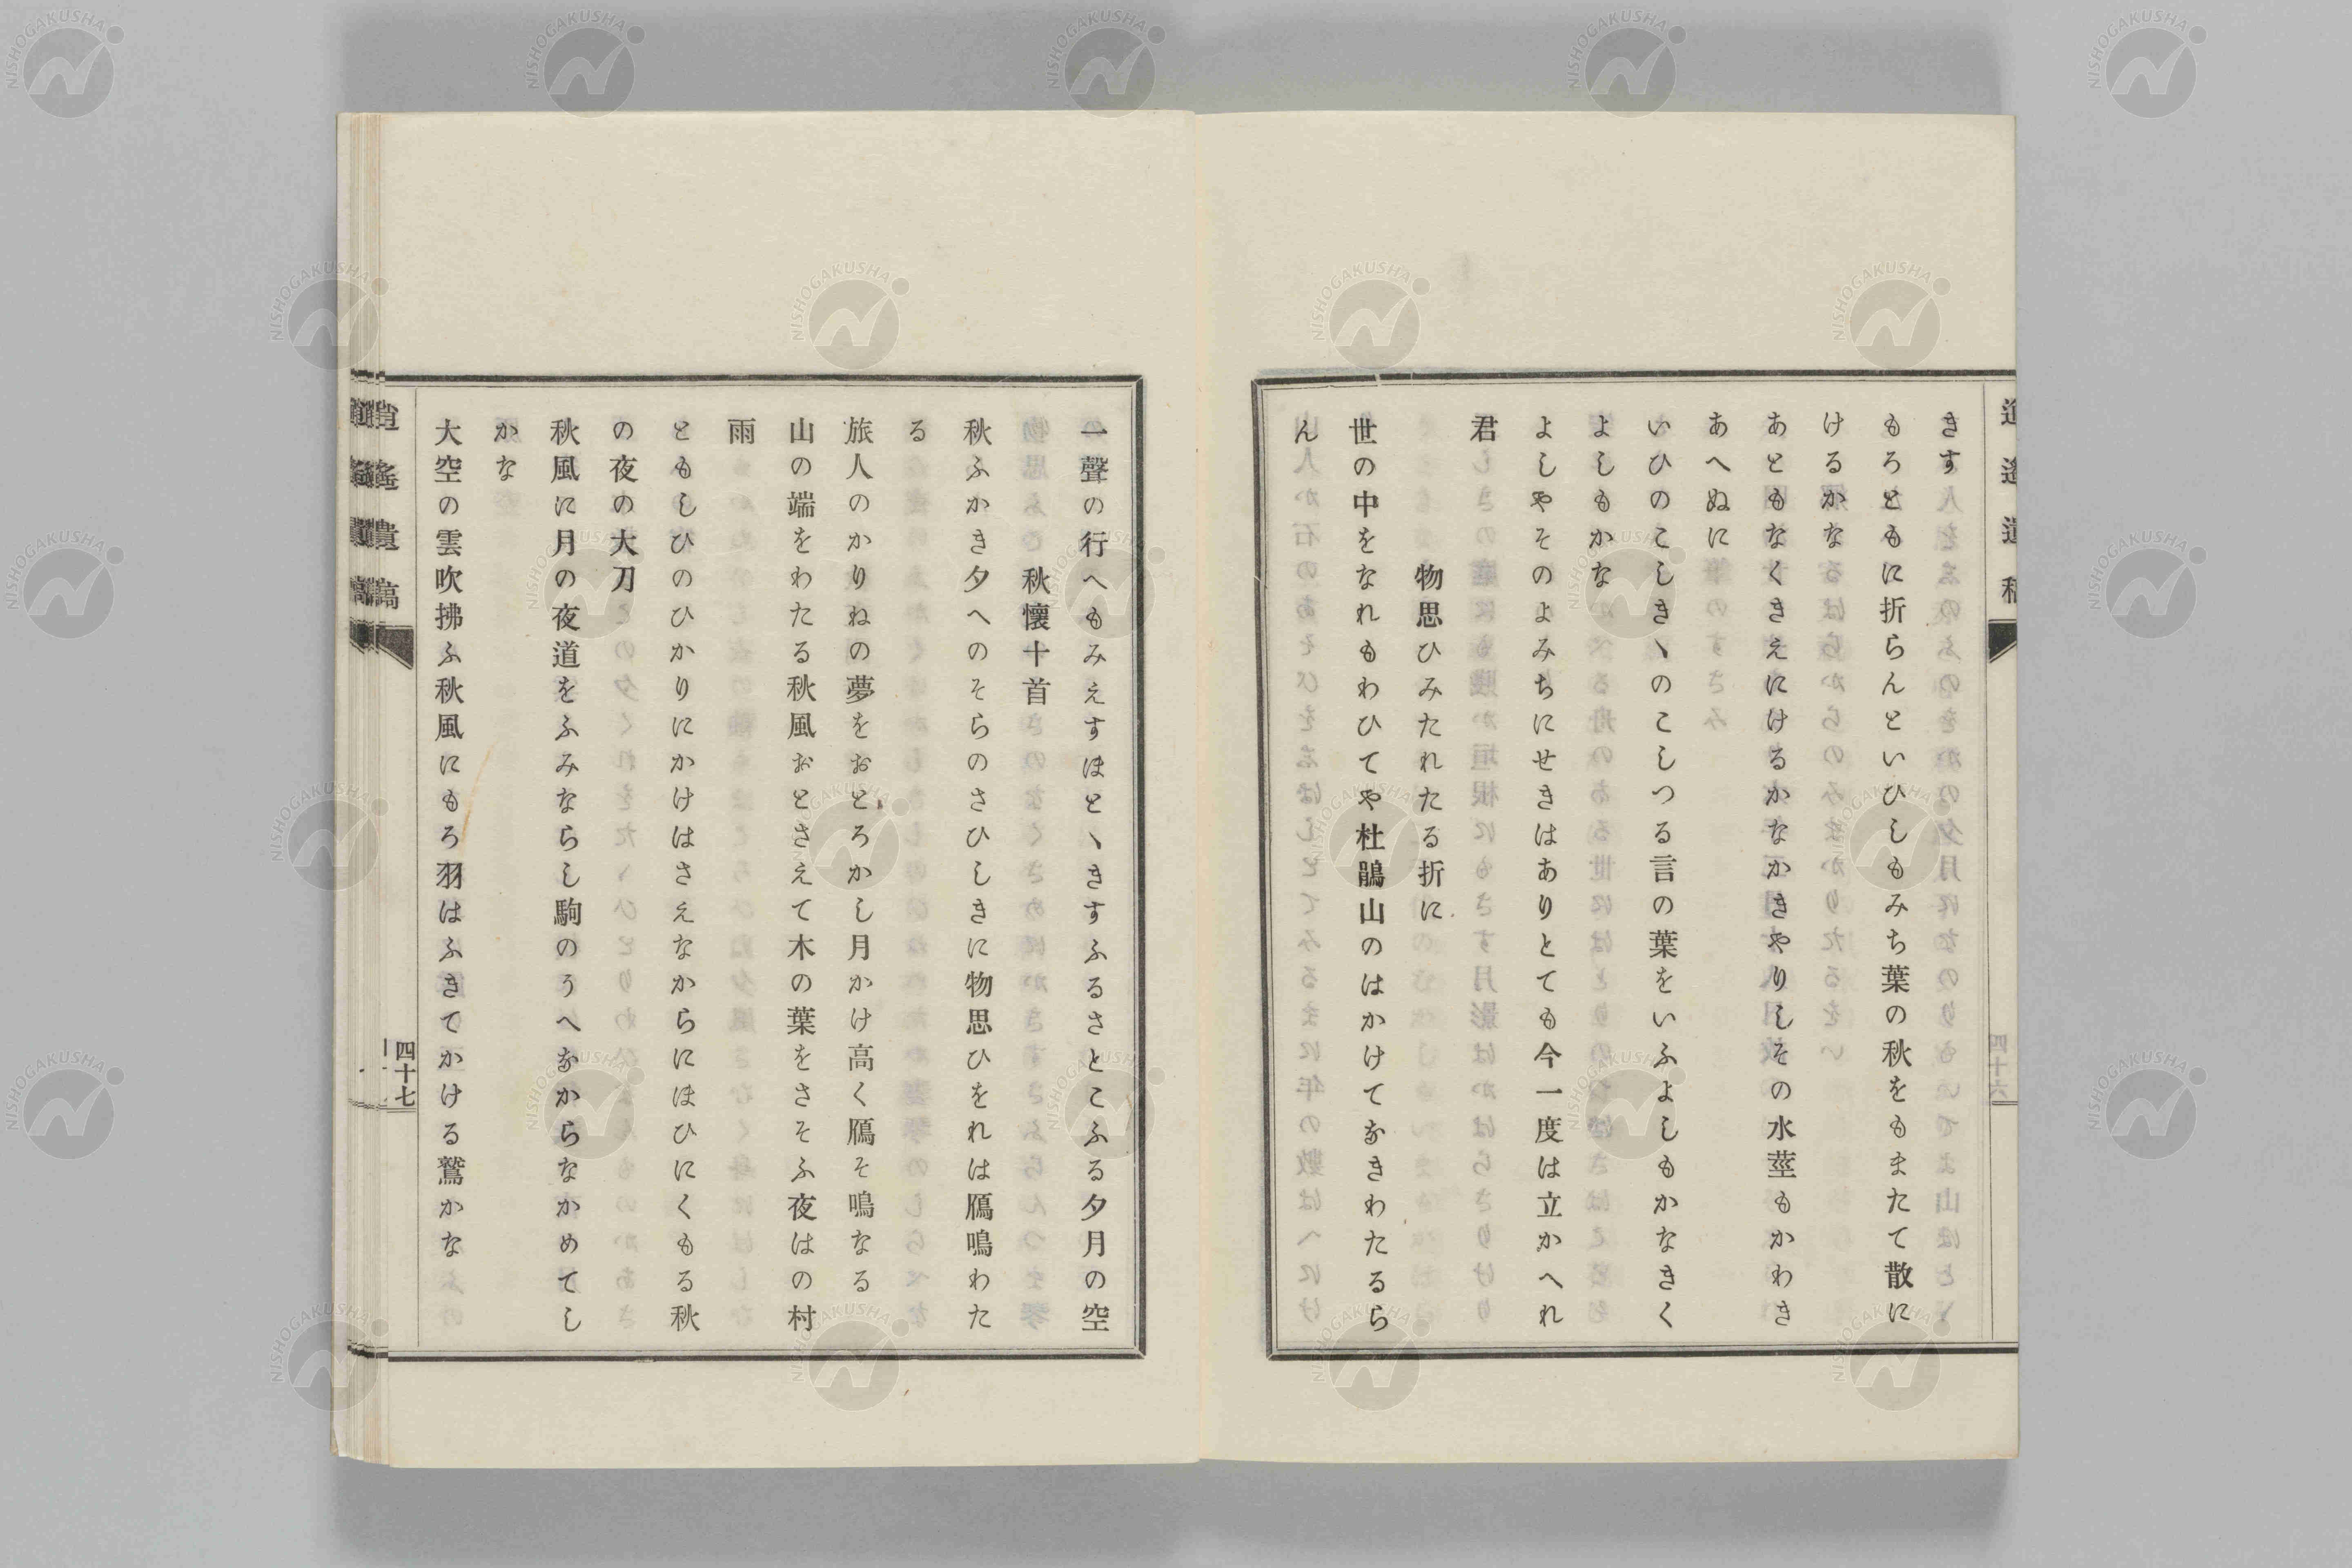 きす
もろともに折らんといひしもみち葉の秋をもまたて散に
けるかな
あともなくきえにけるかなかきやりしその水莖もかわき
あへぬに
いひのこしきヽのこしつる言の葉をいふよしもかなきく
よしもかな
よしやそのよみちにせきはありとても今一度は立かへれ
君
物思ひみたれたる折に
世の中をなれもわひてや杜鵑山のはかけてなきわたるら
ん
四十六
一聲の行へもみえすほとヽきすふるさとこふる夕月の空
秋懷十首
秋ふかき夕へのそらのさひしきに物思ひをれは鴈鳴わた
る
旅人のかりねの夢をおとろかし月かけ高く鴈そ鳴なる
山の端をわたる秋風おとさえて木の葉をさそふ夜はの村
雨
ともしひのひかりにかけはさえなからにほひにくもる秋
の夜の大刀
秋風に月の夜道をふみならし駒のうへなからなかめてし
かな
大空の雲吹拂ふ秋風にもろ羽はふきてかける鷲かな
逍遙遺稿
四十七
NISHOGAKUSHA